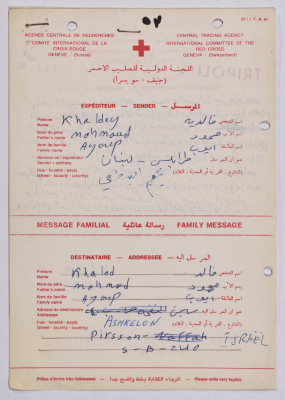 AGENCE CENTRALE DE RECHERCHES
COMITÉ INTERNATIONAL DE LA
CROIX-ROUGE
GENÈVE - (Suisse)
CENTRAL TRACING AGENCY
INTERNATIONAL COMMITTEE OF THE
RED CROSS
GENEVA - (Switzerland)
اللجنة الدولية للصليب الأحمر
(جنيف - سويسرا)
EXPÉDITEUR - SENDER - المرسل
Prénom
Name Khaldey خالدية اسم الشخص
Nom du père
Father's name mahmoud محمود اسم الأب
Nom de famille
Family name Ayoup ايوب اسم العائلة
Adresse de l'expéditeur
Sender's address طرابلس - لبنان عنوان المرسل
(rue - localité - pays)
(street - locality - country) مخيم البداوي
MESSAGE FAMILIAL رسالة عائلية FAMILY MESSAGE
DESTINATAIRE - ADDRESSEE - المرسل اليه
Prénom
Name Khaled خالد اسم الشخص
Nom du père
Father's name mahmud محمود اسم الأب
Nom de famille
Family name ayoup ايوب اسم العائلة
Adresse du destinataire
Addressee's address سجن
(rue - localité - pays)
(street - locality - country) ASHKELON
Pirsson Naffah ISRAËL
S-B-240
Prière d'écrire très lisiblement الرجاء الكتابة بخط واضح جدا Please write very legibly